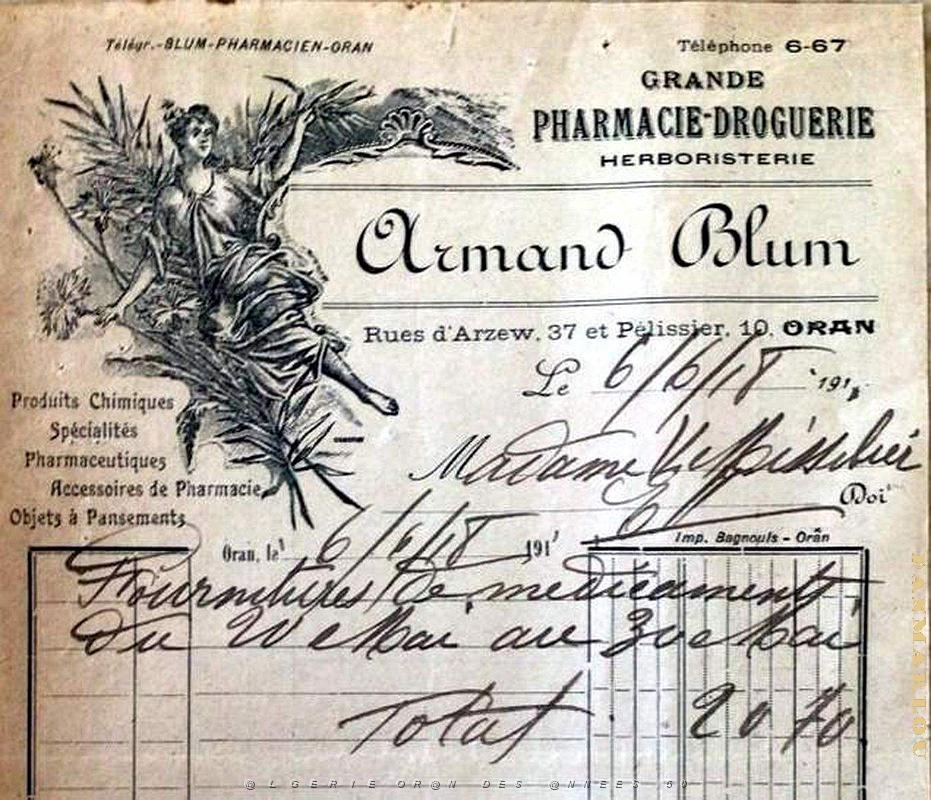 Télégr.-BLUM-PHARMACIEN-ORAN
Téléphone 6-67
GRANDE
PHARMACIE-DROGUERIE
HERBORISTERIE
Armand Blum
Rues d'Arzew, 37 et Pélissier, 10, ORAN
Le 6/6/18 191
Madame
Doit
Produits Chimiques
Spécialités
Pharmaceutiques
Accessoires de Pharmacie
Objets à Pansements
Imp. Bagnouls - Oran
Oran, le 6/6/18 191
Fournitures de medicaments
du 20 Mai au 30 Mai
Total 20 70
@LGERIE OR@N DES @NNEES 50